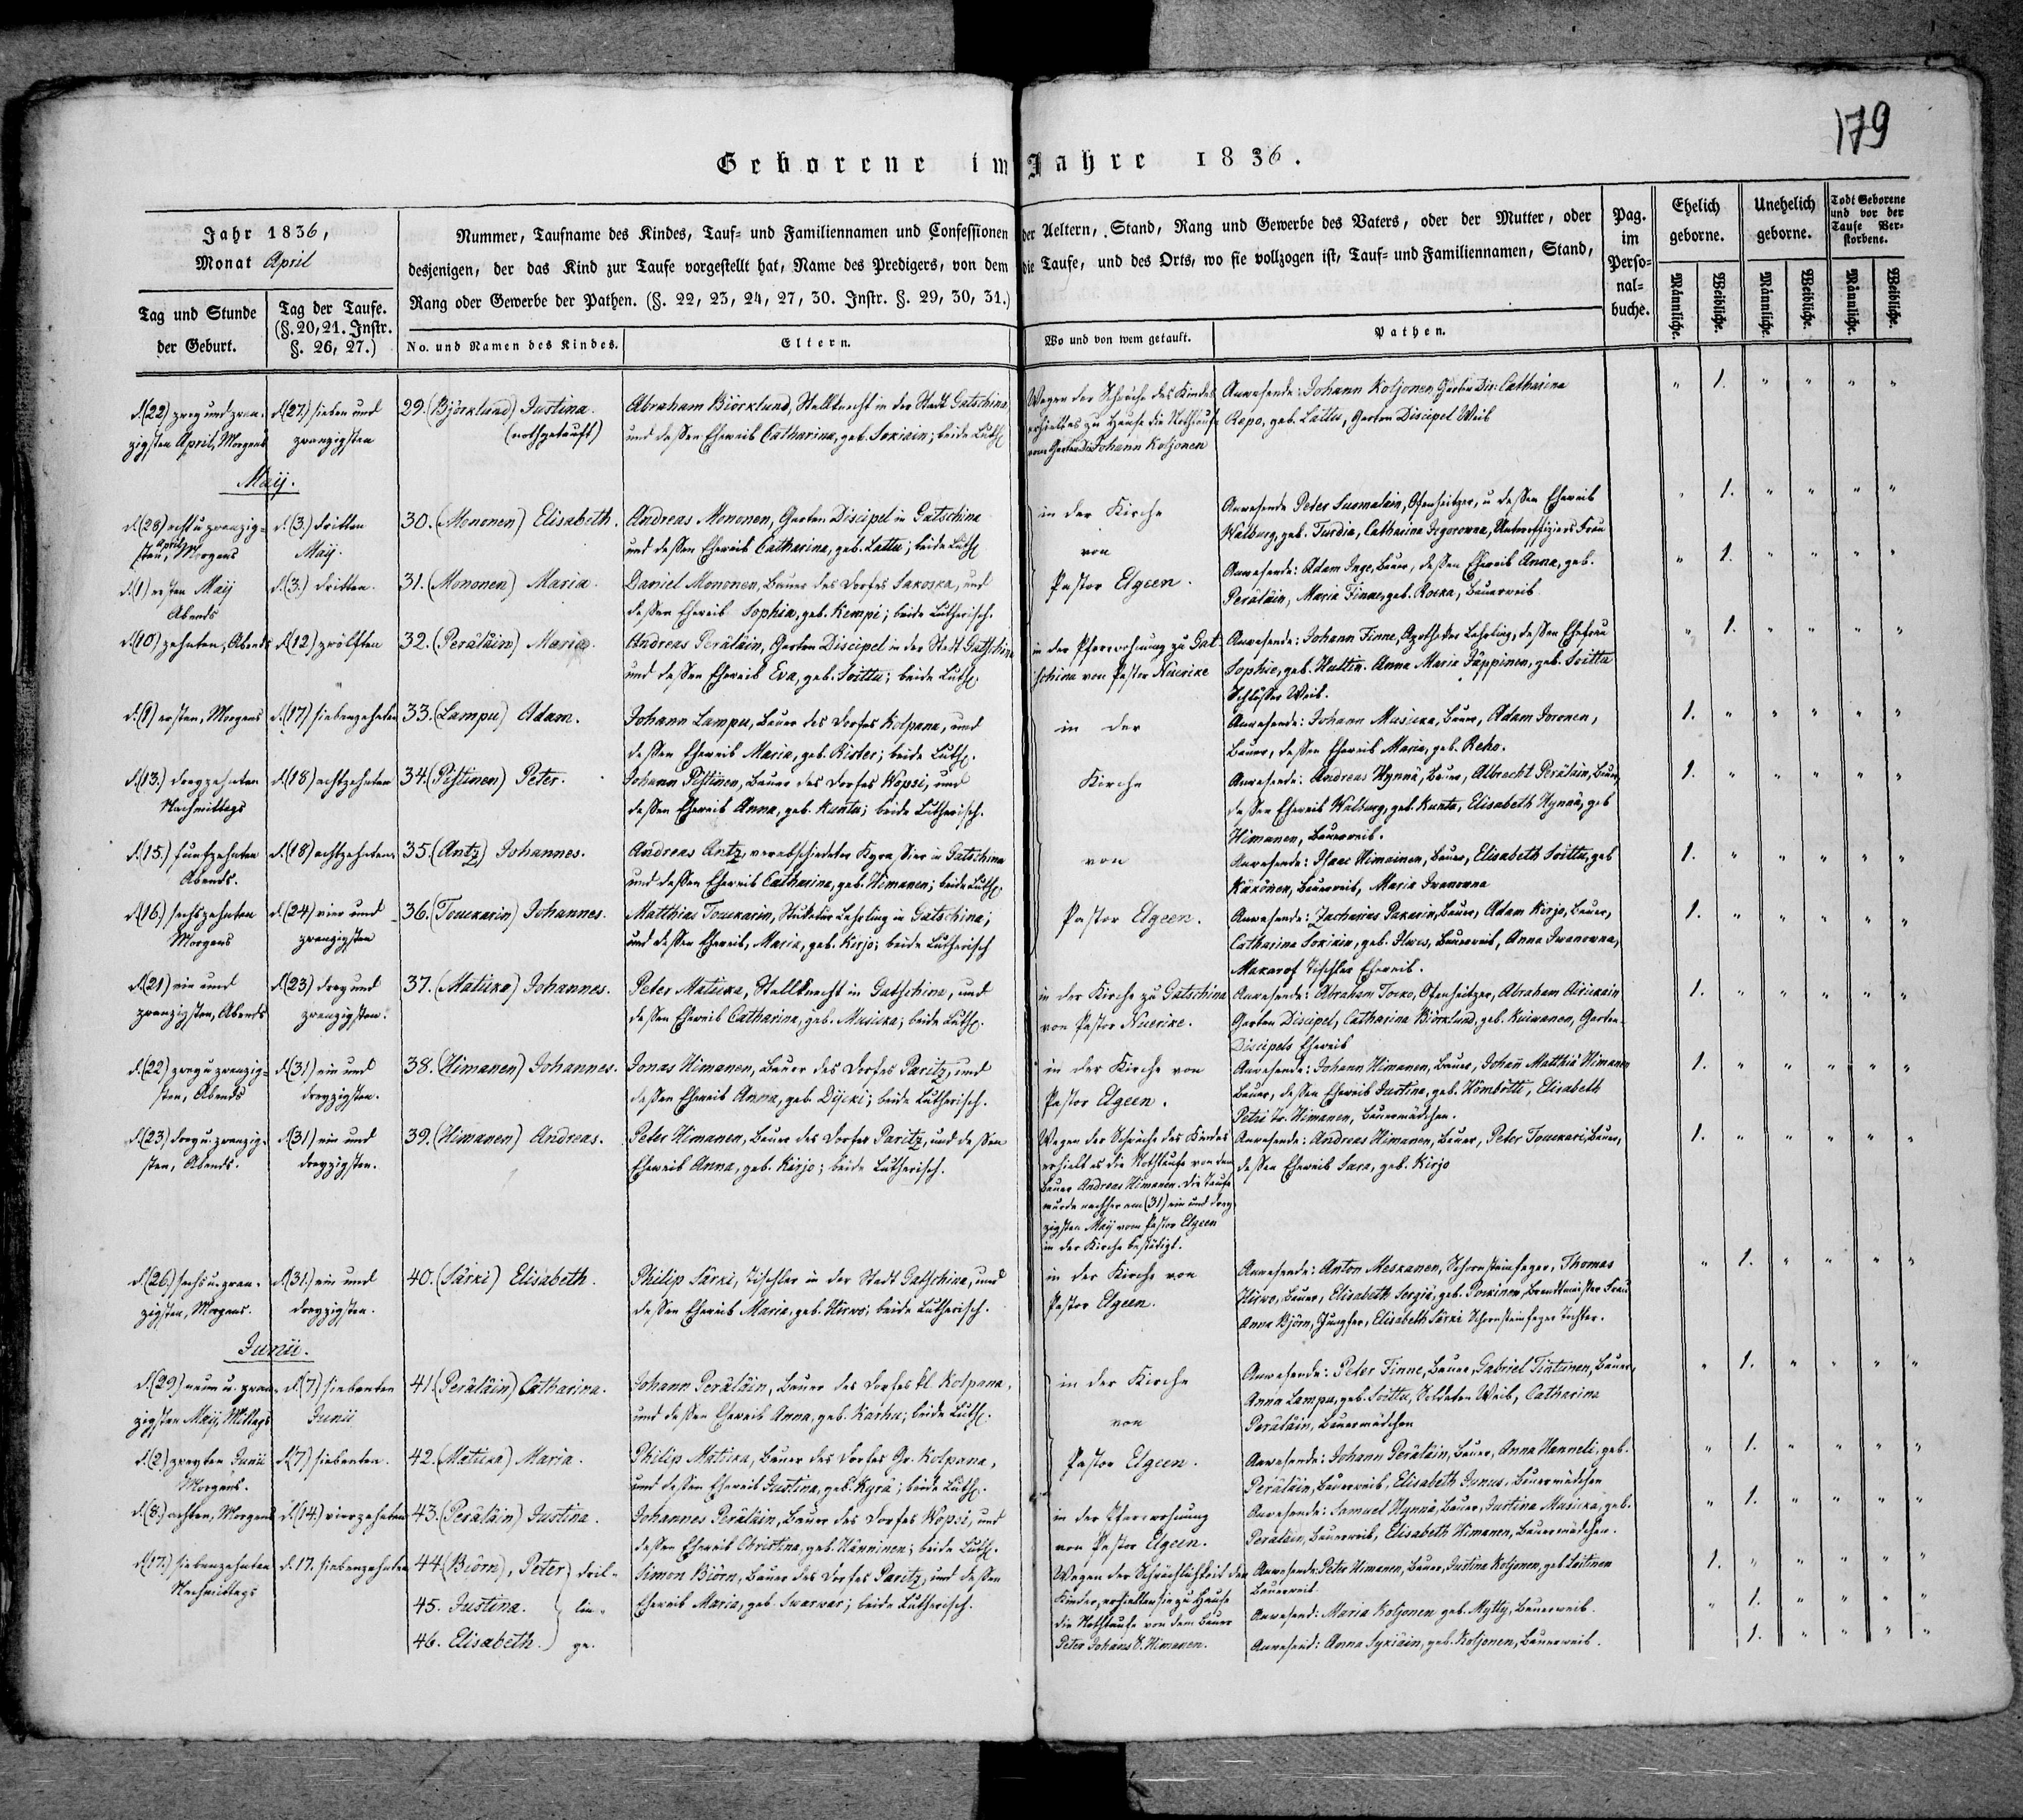 179
Geborene im Jahre 1836.
Jahr 1836,
Monat April
Tag und Stunde
der Geburt.
Tag der Taufe.
(§. 20, 21. Instr.
§. 26, 27.)
Nummer, Taufname des Kindes, Tauf- und Familiennamen und Confessionen der Aeltern, Stand, Rang und Gewerbe des Vaters, oder der Mutter, oder
desjenigen, der das Kind zur Taufe vorgestellt hat, Name des Predigers, von dem die Taufe, und des Orts, wo sie vollzogen ist, Tauf- und Familiennamen, Stand,
Rang oder Gewerbe der Pathen. (§. 22, 23, 24, 27, 30. Instr. §. 29, 30, 31.)
No. und Namen des Kindes.
Eltern.
Wo und von wem getauft.
Pathen.
Pag.
im
Perso-
nal-
buche.
Ehelich
geborne.
Unehelich
geborne.
Todt Geborene
und vor der
Taufe Ver-
storbene.
Männliche.
Weibliche.
Männliche.
Weibliche.
Männliche.
Weibliche.
d. (22) zwey und zwan-
zigsten April, Morgens
d. (27) sieben und
zwanzigsten
29. (Björklund) Justina.
(nothgetauft)
Abraham Biörklund, Stallknecht in der Stadt Gatschina,
und dessen Eheweib Catharina, geb. Sokiäin; beide Luth.
Wegen der Schwäche des Kindes
erhielt es zu Hause die Nothtaufe
vom Garten Dis. Johann Koljonen
Anwesende: Johann Koljonen, Garten Dis: Catharina
Repo, geb. Lattu, Garten Discipel Weib
" 1. " " " "
Maij.
d. (28) acht u. zwanzig-
sten April, Morgens
d. (3.) dritten
Maij.
30. (Mononen) Elisabeth.
Andreas Mononen, Garten Discipel in Gatschina
und dessen Eheweib Catharina, geb. Lattu; beide Luth.
in der Kirche
von
Pastor Elgeen.
Anwesende Peter Suomalain, Ofenheitzer, u dessen Eheweib
Walburg, geb. Turdia, Catharina Jegorowna, Unterofficiers Frau
" 1. " " " "
d. (1) ersten Maij
Abends
d. (3.) dritten.
31. (Mononen) Maria.
Daniel Mononen, Bauer des Dorfes Sakoska, und
dessen Eheweib Sophia, geb. Kempi; beide Lutherisch.
Anwesende: Adam Inge, Bauer, dessen Eheweib Anna, geb.
Peräläin, Maria Finne, geb. Rocka, Bauerweib
" 1. " " " "
d. (10) zehnten, Abends
d. (12) zwölften
32. (Peräläin) Maria.
Andreas Peräläin, Garten Discipel in der Stadt Gatschina
und dessen Eheweib Eva, geb. Soittu; beide Luth.
in der Pfarrwohnung zu Gat-
schina von Pastor Nuerike
Anwesende: Johann Finne, Apotheker Lehrling, dessen Ehefrau
Sophie, geb. Huttin. Anna Maria Jäppinen, geb. Soittu
Schlosser Weib.
" 1. " " " "
d. (1) ersten, Morgens
d. (17) siebenzehnten
33. (Lampu) Adam.
Johann Lampu, Bauer des Dorfes Kolpana, und
dessen Eheweib Maria, geb. Rister; beide Luth.
in der
Kirche
von
Pastor Elgeen.
Anwesende: Johann Musuka, Bauer, Adam Joronen,
Bauer, dessen Eheweib Maria, geb. Reho.
1. " " " " "
d. (13.) dreyzehnten
Nachmittags
d. (18) achtzehnten
34. (Pistinen) Peter.
Johann Pistinen, Bauer des Dorfes Wopsi, und
dessen Eheweib Anna, geb. Kuntu; beide Lutherisch.
Anwesende: Andreas Hynnä, Bauer, Albrecht Peräläin, Bauer,
dessen Eheweib Walburg, geb. Kunta, Elisabeth Hynnä, geb
Himanen, Bauerweib.
1. " " " " "
d. (15.) funfzehnten
Abends.
d. (18) achtzehnten
35. (Antz) Johannes.
Andreas Antz verabschiedeter Kyrassier in Gatschina
und dessen Eheweib Catharina, geb. Himanen; beide Luth.
Anwesende: Isaac Himainen, Bauer, Elisabeth Soittu, geb
Käkönen, Bauerweib, Maria Iwanowna
1. " " " " "
d. (16.) sechszehnten
Morgens
d. (24) vier und
zwanzigsten
36. (Toukarin) Johannes.
Matthias Toukarin, Stukatur Lehrling in Gatschina;
und dessen Eheweib, Maria, geb. Kirjo; beide Lutherisch
Anwesende: Zacharias Pakarin, Bauer, Adam Kirjo, Bauer,
Catharina Sokiäin, geb. Ilwes, Bauerweib, Anna Iwanowna,
Makarof Tischler Eheweib.
1. " " " " "
d. (21) ein und
zwanzigsten, Abends
d. (23) drey und
zwanzigsten.
37. (Matuka) Johannes.
Peter Matuka, Stallknecht in Gatschina, und
dessen Eheweib Catharina, geb. Musuka; beide Luth.
in der Kirche zu Gatschina
von Pastor Nuerike.
Anwesende: Abraham Tocko, Ofenheitzer, Abraham Airikain
Garten Discipel, Catharina Biörklund, geb. Kuiwanen, Garten-
Discipels Eheweib
1. " " " " "
d. (22) zwey u zwanzig-
sten, Abends
d. (31) ein und
dreyzigsten.
38. (Himanen) Johannes.
Jonas Himanen, Bauer des Dorfes Paritz, und
dessen Eheweib Anna, geb. Dijcki; beide Lutherisch.
in der Kirche von
Pastor Elgeen.
Anwesende: Johann Himanen, Bauer, Johan Matthiä Himanen
Bauer, dessen Eheweib Justina, geb. Hömböttä, Elisabeth
Petri Tr. Himanen, Bauermädchen.
1. " " " " "
d. (23.) drey u. zwanzig-
sten, Abends.
d. (31) ein und
dreyzigsten.
39. (Himanen) Andreas.
Peter Himanen, Bauer des Dorfes Paritz, und dessen
Eheweib Anna, geb. Kirjo; beide Lutherisch.
Wegen der Schwäche des Kindes
erhielt es die Nothtaufe von dem
Bauer Andreas Himanen. Die Taufe
wurde nachher am (31) ein und drey-
zigsten Maij vom Pastor Elgeen
in der Kirche bestätigt.
Anwesende: Andreas Himanen, Bauer, Peter Toukari, Bauer,
dessen Eheweib Sara, geb. Kirjo
1. " " " " "
d. (26) sechs u. zwan-
zigsten, Morgens.
d. (31.) ein und
dreyzigsten.
40. (Särki) Elisabeth.
Philip Särki, Tischler in der Stadt Gatschina, und
dessen Eheweib Maria, geb. Hirwo; beide Lutherisch.
in der Kirche von
Pastor Elgeen.
Anwesende: Anton Meskanen, Schornsteinfeger, Thomas
Hirwo, Bauer, Elisabeth Sergiä, geb. Poikinen, Brandtmeister Frau
Anna Björn, Jungfer, Elisabeth Särki Schornsteinfeger Tochter.
" 1. " " " "
Junii.
d. (29) neun u. zwan-
zigsten Maij, Mittags
d. (7) siebenten
Junii
41. (Peräläin) Catharina.
Johann Peräläin, Bauer des Dorfes kl. Kolpana,
und dessen Eheweib Anna, geb. Karhu; beide Luth.
in der Kirche
von
Pastor Elgeen.
Anwesende: Peter Finne, Bauer, Gabriel Tintunen, Bauer,
Anna Lampu, geb. Soittu, Soldaten Weib, Catharina
Peräläin, Bauermädchen
" 1. " " " "
d. (2) zweyten Junii
Morgens.
d. (7) siebenten.
42. (Matuka) Maria.
Philip Matuka, Bauer des Dorfes Gr. Kolpana,
und dessen Eheweib Justina, geb. Kyrä; beide Luth.
Anwesende: Johann Peräläin, Bauer, Anna Hanneli, geb.
Peräläin, Bauerweib, Elisabeth Junus, Bauermädchen
" 1. " " " "
d. (8.) achten, Morgens
d. (14) vierzehnten
43. (Peräläin) Justina.
Johannes Peräläin, Bauer des Dorfes Wopsi, und
dessen Eheweib Christina, geb. Hänninen; beide Luth.
in der Pfarrwohnung
von Pastor Elgeen.
Anwesende: Samuel Hynnä, Bauer, Justina Musuka, geb.
Peräläin, Bauerweib, Elisabeth Himanen, Bauermädchen.
" 1. " " " "
d. (17.) siebenzehnten
Nachmittags
d. 17. siebenzehnten
44. (Biörn), Peter
45. Justina.
46. Elisabeth.
dril-
lin-
ge.
Simon Biörn, Bauer des Dorfes Paritz, und dessen
Eheweib Maria, geb. Swarwar; beide Lutherisch.
Wegen der Schwächlichkeit der
Kinder, erhielten sie zu Hause
die Nothtaufe von dem Bauer
Peter Johans S. Himanen.
Anwesende: Peter Himanen, Bauer, Justina Koljonen, geb Loitinen
Bauerweib.
Anwesend: Maria Koljonen geb. Mytty, Bauerweib.
Anwesend: Anna Sykiäin, geb. Koljonen, Bauerweib.
1. " " " " "
" 1. " " " "
1. " " " "